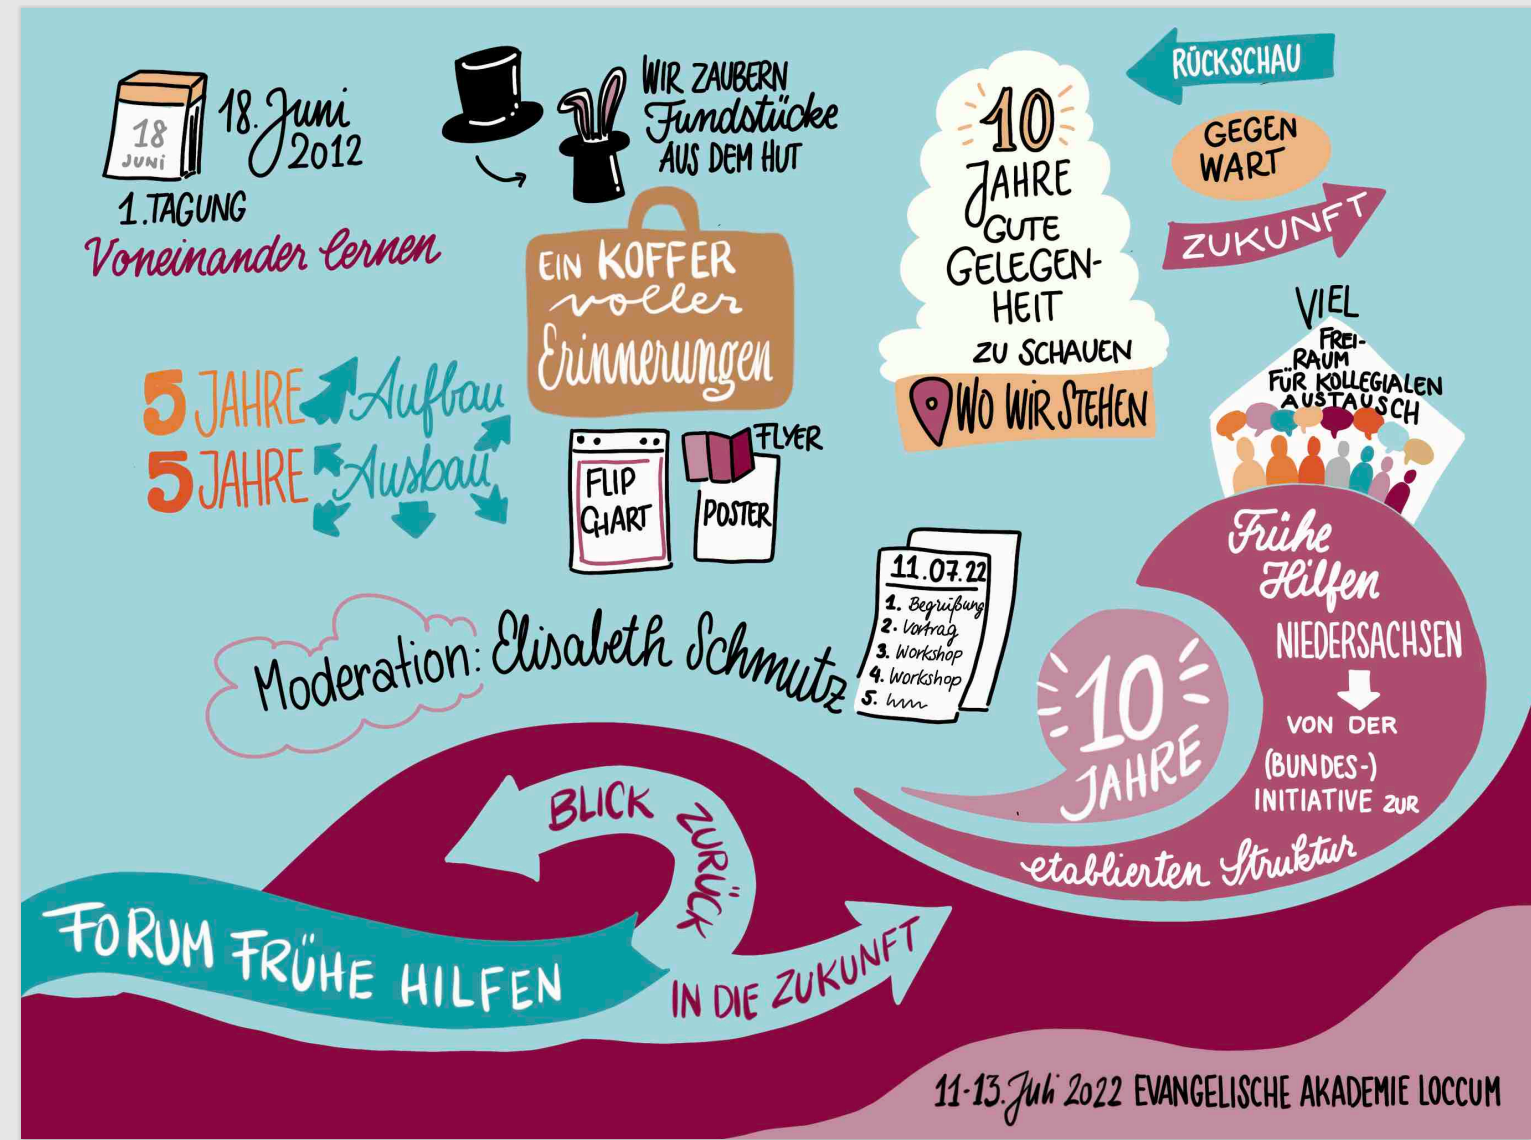 18
JUNI
18. Juni
2012
1. TAGUNG
Voneinander lernen
WIR ZAUBERN
Fundstücke
AUS DEM HUT
EIN KOFFER
voller
Erinnerungen
10
JAHRE
GUTE
GELEGEN-
HEIT
ZU SCHAUEN
WO WIR STEHEN
RÜCKSCHAU
GEGEN
WART
ZUKUNFT
VIEL
FREI-
RAUM
FÜR KOLLEGIALEN
AUSTAUSCH
5 JAHRE Aufbau
5 JAHRE Ausbau
FLIP
CHART
FLYER
POSTER
Moderation: Elisabeth Schmutz
11.07.22
1. Begrüßung
2. Vortrag
3. Workshop
4. Workshop
5.
10
JAHRE
Frühe
Hilfen
NIEDERSACHSEN
VON DER
(BUNDES-)
INITIATIVE ZUR
etablierten Struktur
BLICK
ZURÜCK
FORUM FRÜHE HILFEN
IN DIE ZUKUNFT
11-13. Juli 2022 EVANGELISCHE AKADEMIE LOCCUM